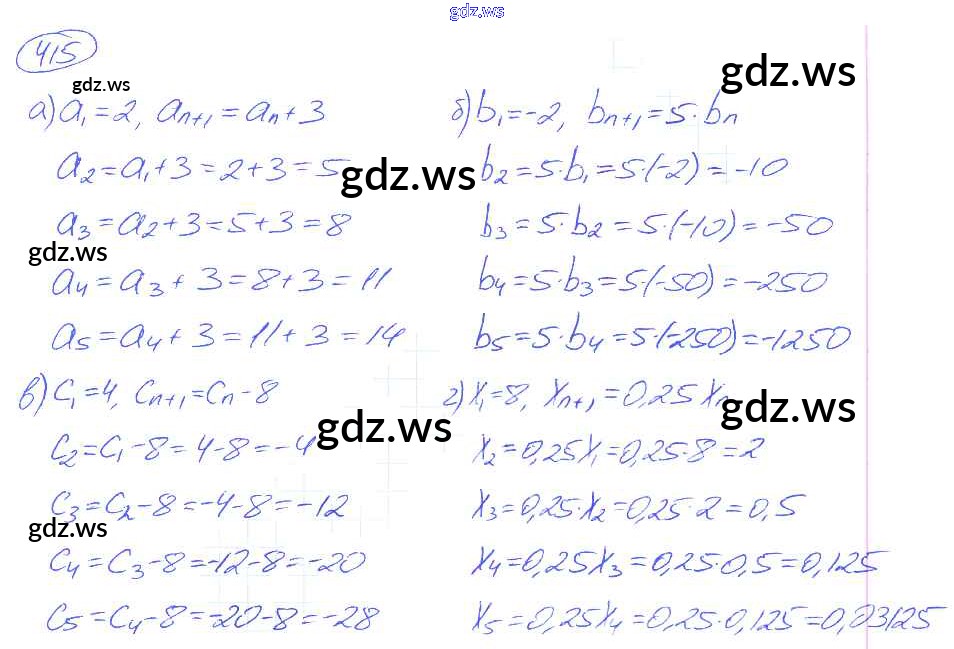 gdz.ws
415
gdz.ws
gdz.ws
а) a₁=2, aₙ₊₁=aₙ+3
a₂=a₁+3=2+3=5
gdz.ws
a₃=a₂+3=5+3=8
gdz.ws
a₄=a₃+3=8+3=11
a₅=a₄+3=11+3=14
б) b₁=-2, bₙ₊₁=5·bₙ
b₂=5·b₁=5·(-2)=-10
b₃=5·b₂=5·(-10)=-50
b₄=5·b₃=5·(-50)=-250
b₅=5·b₄=5·(-250)=-1250
в) c₁=4, cₙ₊₁=cₙ-8
c₂=c₁-8=4-8=-4
gdz.ws
c₃=c₂-8=-4-8=-12
gdz.ws
c₄=c₃-8=-12-8=-20
c₅=c₄-8=-20-8=-28
г) x₁=8, xₙ₊₁=0,25xₙ
gdz.ws
x₂=0,25x₁=0,25·8=2
x₃=0,25·x₂=0,25·2=0,5
x₄=0,25x₃=0,25·0,5=0,125
x₅=0,25x₄=0,25·0,125=0,03125